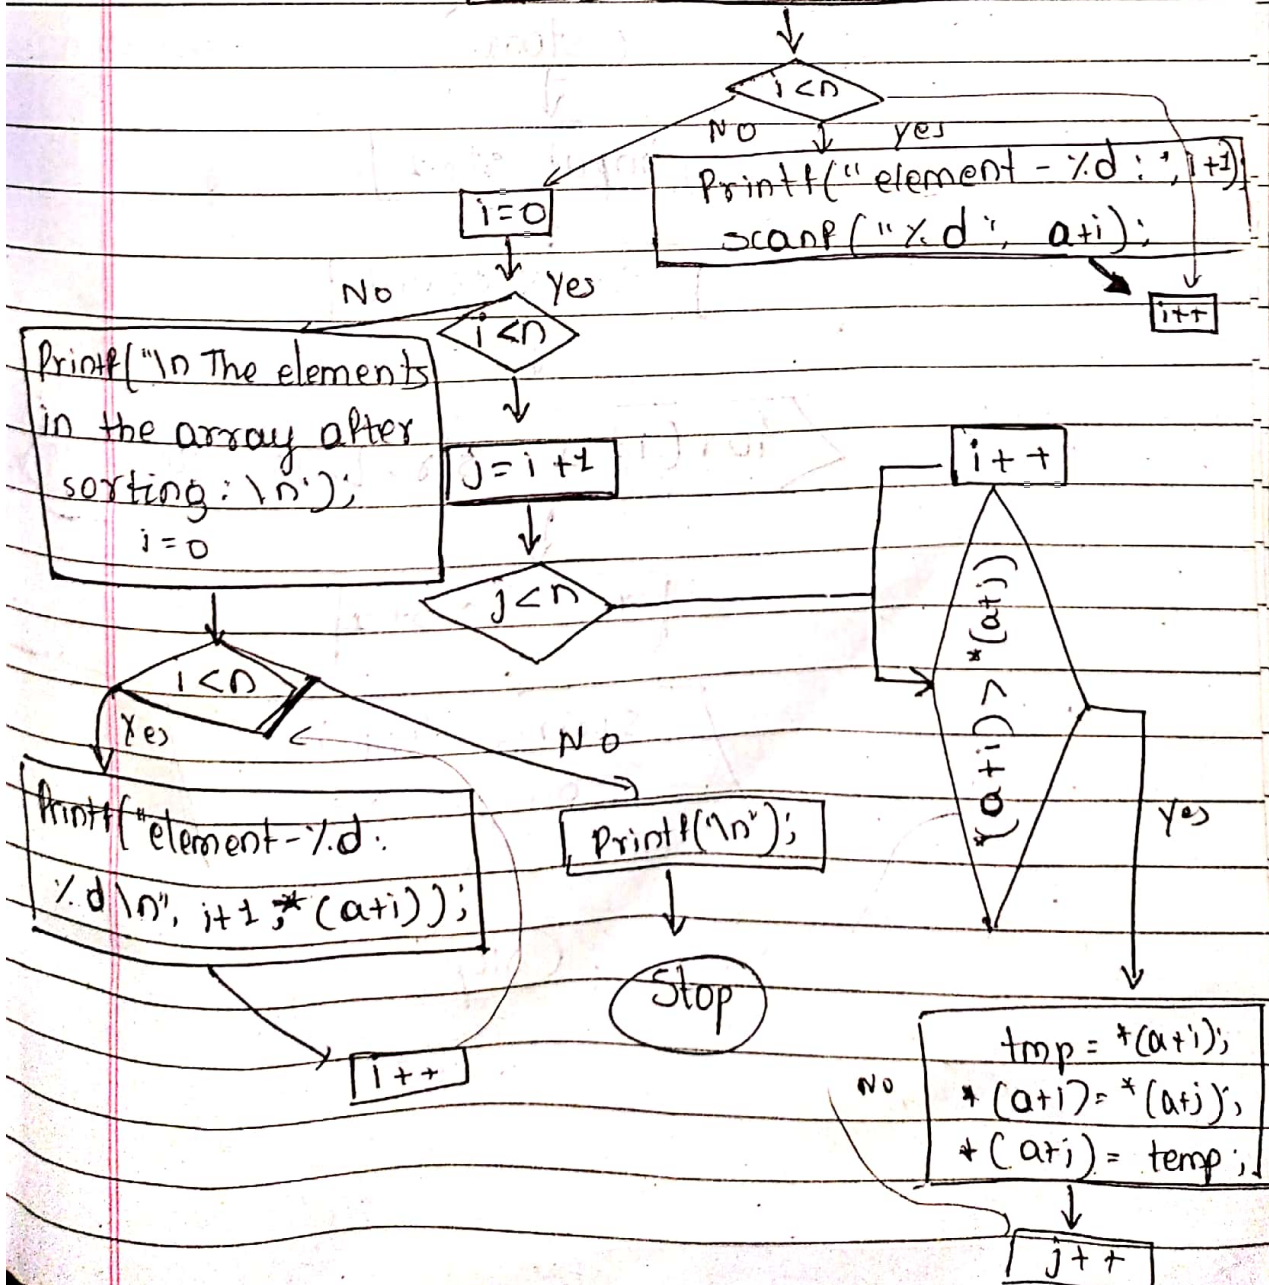 i<n
NO
yes
Printf("element - %d : ", i+1);
scanf("%d", a+i);
i++
i=0
No
Yes
i<n
Printf("\n The elements
in the array after
sorting : \n");
i=0
j=i+1
j<n
i++
*(a+i)>*(a+j)
Yes
i<n
Yes
NO
Printf("element-%d:
%d\n", i+1,*(a+i));
i++
Printf("\n");
Stop
NO
tmp = *(a+i);
*(a+i)=*(a+j);
*(a+j)= temp;
j++